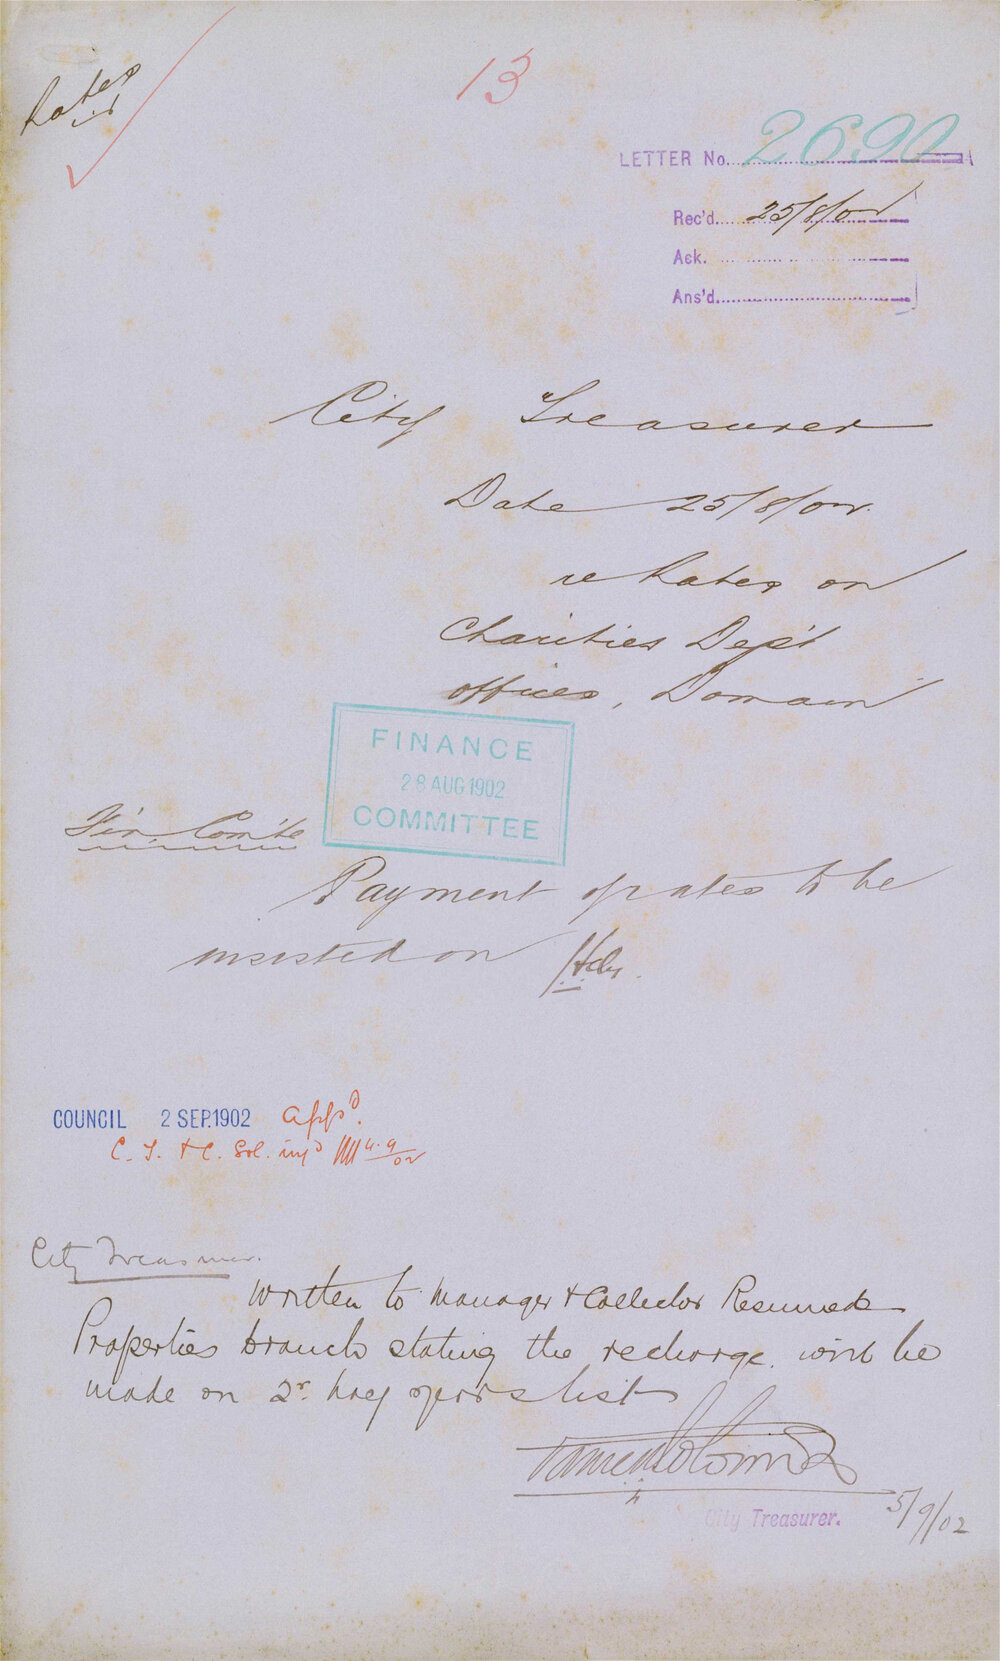 Rates
13
LETTER No. 2690
Rec'd. 25/8/02
Ack.
Ans'd.
City Treasurer
Date 25/8/02.
re Rates on
Charities Dep't
offices, Domain
FINANCE
28 AUG 1902
COMMITTEE
Fin. Com'te
Payment of rates to be
insisted on
COUNCIL 2 SEP. 1902 app'd.
C. T. & C. Sol. inf'd 4.9/02
City Treasurer.
Written to Manager & Collector Resumed
Properties branch stating the recharge will be
made on 2r half year's list
City Treasurer. 5/9/02